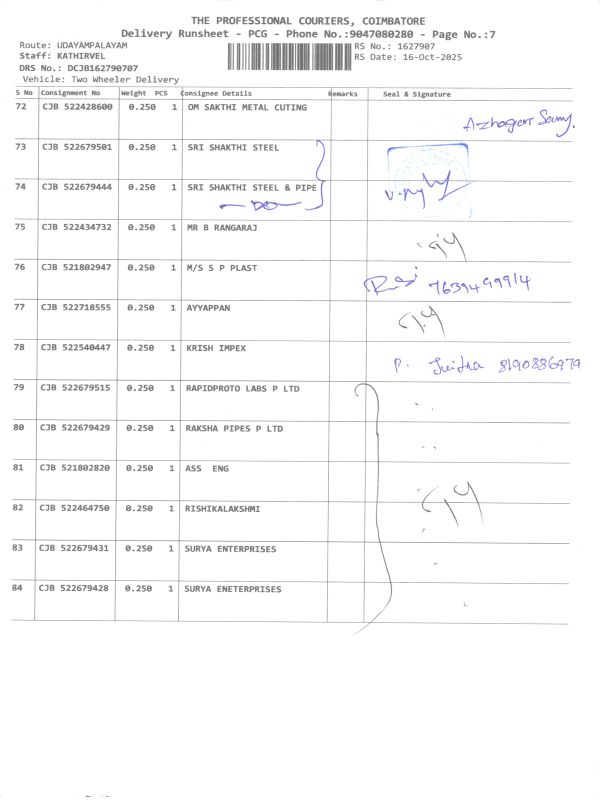 THE PROFESSIONAL COURIERS, COIMBATORE
Delivery Runsheet - PCG - Phone No.:9047080280 - Page No.:7
Route: UDAYAMPALAYAM RS No.: 1627907
Staff: KATHIRVEL RS Date: 16-Oct-2025
DRS No.: DCJB162790707
Vehicle: Two Wheeler Delivery
S No Consignment No Weight PCS Consignee Details Remarks Seal & Signature
72 CJB 522428600 0.250 1 OM SAKTHI METAL CUTING
73 CJB 522679501 0.250 1 SRI SHAKTHI STEEL
74 CJB 522679444 0.250 1 SRI SHAKTHI STEEL & PIPE
DO
75 CJB 522434732 0.250 1 MR B RANGARAJ
76 CJB 521802947 0.250 1 M/S S P PLAST
77 CJB 522718555 0.250 1 AYYAPPAN
78 CJB 522540447 0.250 1 KRISH IMPEX
P. 8190886979
79 CJB 522679515 0.250 1 RAPIDPROTO LABS P LTD
80 CJB 522679429 0.250 1 RAKSHA PIPES P LTD
81 CJB 521802820 0.250 1 ASS ENG
82 CJB 522464750 0.250 1 RISHIKALAKSHMI
83 CJB 522679431 0.250 1 SURYA ENTERPRISES
84 CJB 522679428 0.250 1 SURYA ENETERPRISES